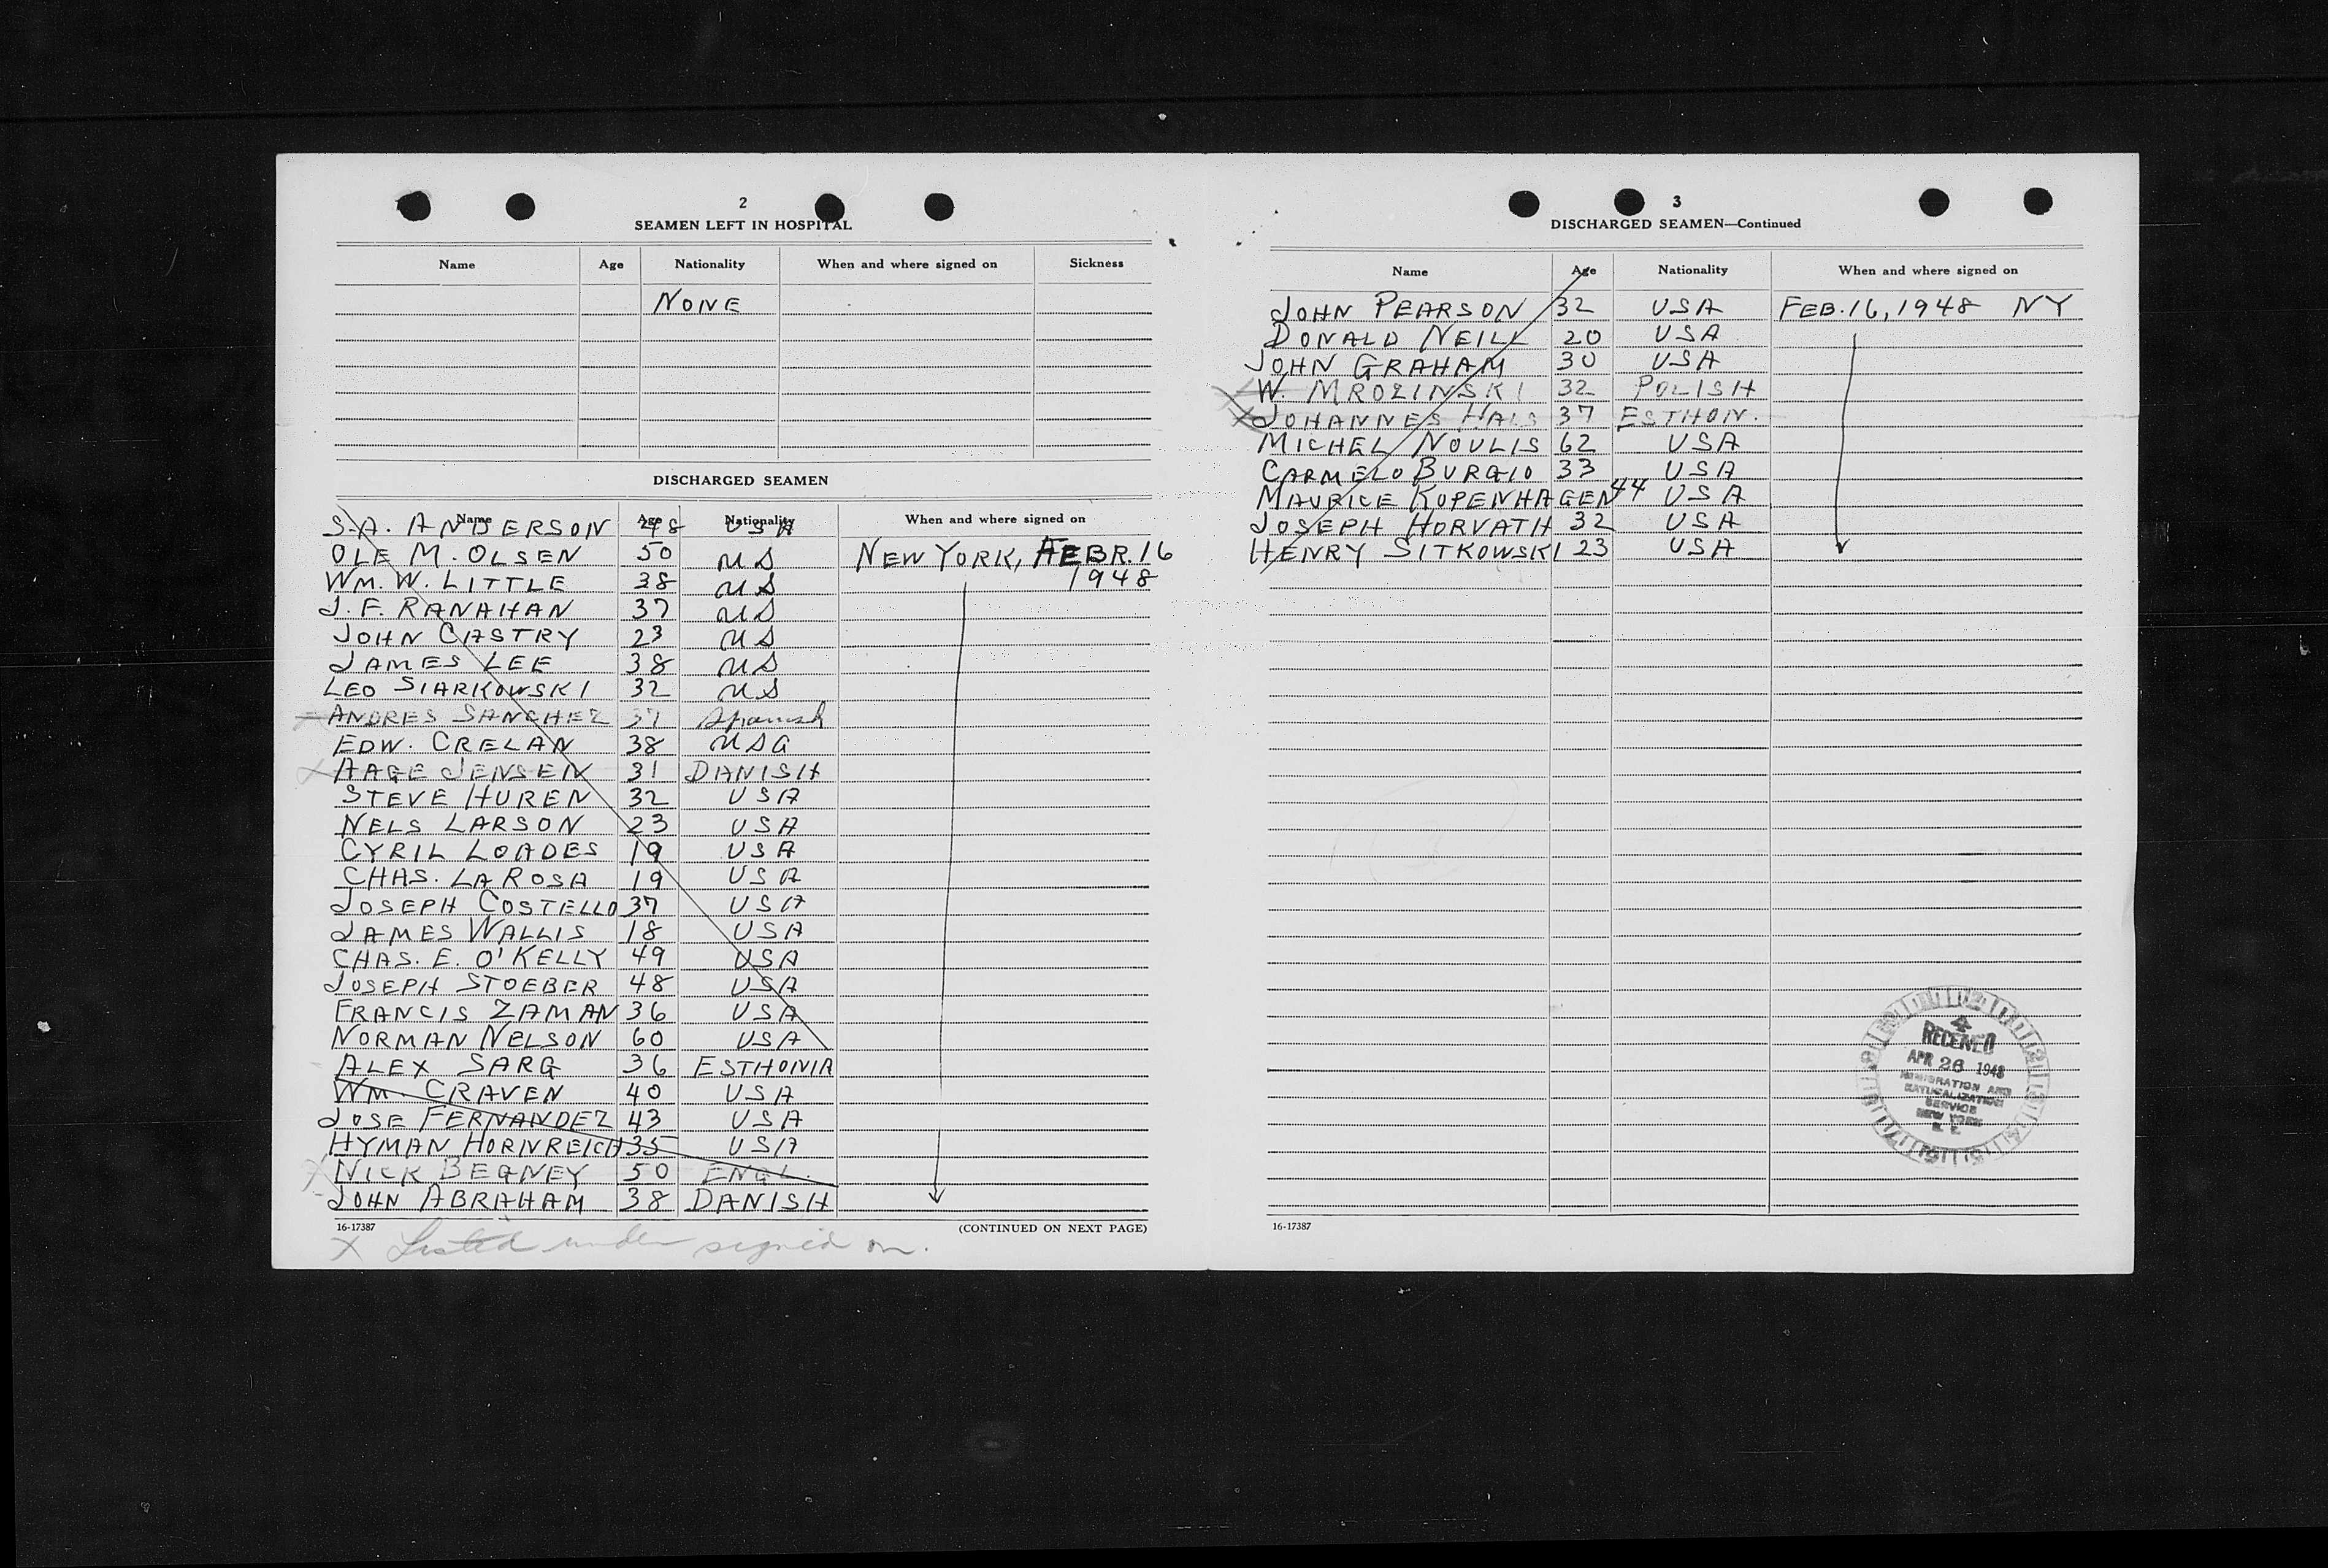 2
SEAMEN LEFT IN HOSPITAL
Name Age Nationality When and where signed on Sickness
NONE
DISCHARGED SEAMEN
Name Age Nationality When and where signed on
S.A. ANDERSON 48 USA
OLE M. OLSEN 50 US NEW YORK, FEBR. 16
WM. W. LITTLE 38 US 1948
J. F. RANAHAN 37 US
JOHN CASTRY 23 US
JAMES LEE 38 US
LEO SIARKOWSKI 32 US
ANDRES SANCHEZ 37 Spanish
EDW. CRELAN 38 USA
X AAGE JENSEN 31 DANISH
STEVE HUREN 32 USA
NELS LARSON 23 USA
CYRIL LOADES 19 USA
CHAS. LA ROSA 19 USA
JOSEPH COSTELLO 37 USA
JAMES WALLIS 18 USA
CHAS. E. O'KELLY 49 USA
JOSEPH STOEBER 48 USA
FRANCIS ZAMAN 36 USA
NORMAN NELSON 60 USA
ALEX SARG 36 ESTHONIA
WM. CRAVEN 40 USA
JOSE FERNANDEZ 43 USA
HYMAN HORNREICH 35 USA
X NICK BEGNEY 50 ENGL.
JOHN ABRAHAM 38 DANISH
16-17387 (CONTINUED ON NEXT PAGE)
X Listed under signed on.
3
DISCHARGED SEAMEN—Continued
Name Age Nationality When and where signed on
JOHN PEARSON 32 USA FEB. 16, 1948 NY
DONALD NEILL 20 USA
JOHN GRAHAM 30 USA
X W. MROZINSKI 32 POLISH
X JOHANNES HALS 37 ESTHON.
MICHEL NOULIS 62 USA
CARMELO BURGIO 33 USA
MAURICE KOPENHAGEN 44 USA
JOSEPH HORVATH 32 USA
HENRY SITKOWSKI 23 USA
4
RECEIVED
APR 26 1948
IMMIGRATION AND
NATURALIZATION
SERVICE
NEW YORK
N. Y.
16-17387